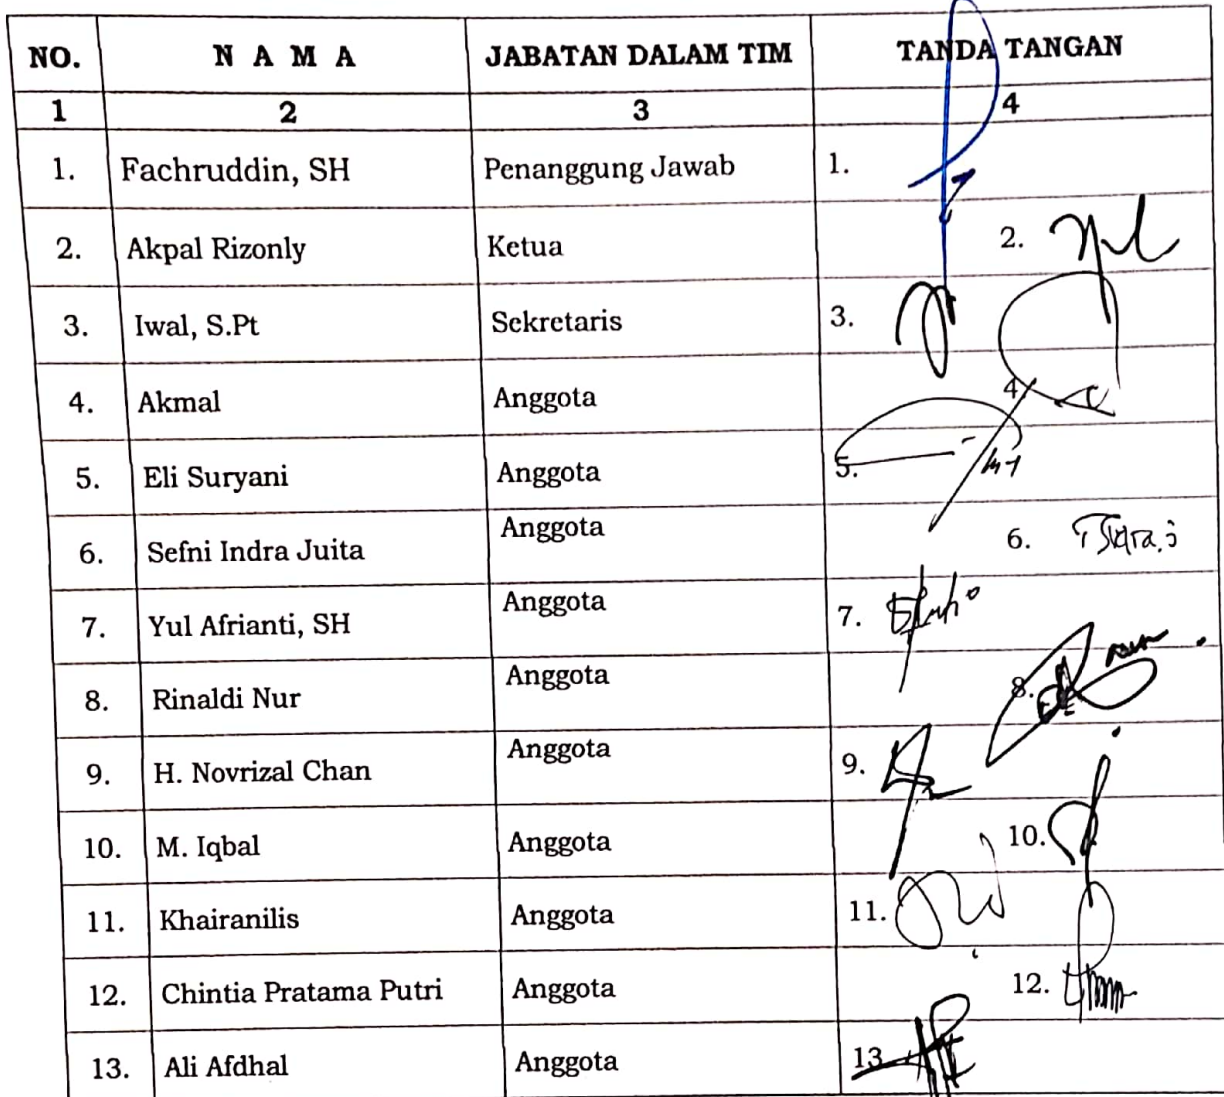 NO. N A M A JABATAN DALAM TIM TANDA TANGAN
1 2 3 4
1. Fachruddin, SH Penanggung Jawab 1.
2. Akpal Rizonly Ketua 2.
3. Iwal, S.Pt Sekretaris 3.
4. Akmal Anggota 4.
5. Eli Suryani Anggota 5.
6. Sefni Indra Juita Anggota 6.
7. Yul Afrianti, SH Anggota 7.
8. Rinaldi Nur Anggota 8.
9. H. Novrizal Chan Anggota 9.
10. M. Iqbal Anggota 10.
11. Khairanilis Anggota 11.
12. Chintia Pratama Putri Anggota 12.
13. Ali Afdhal Anggota 13.